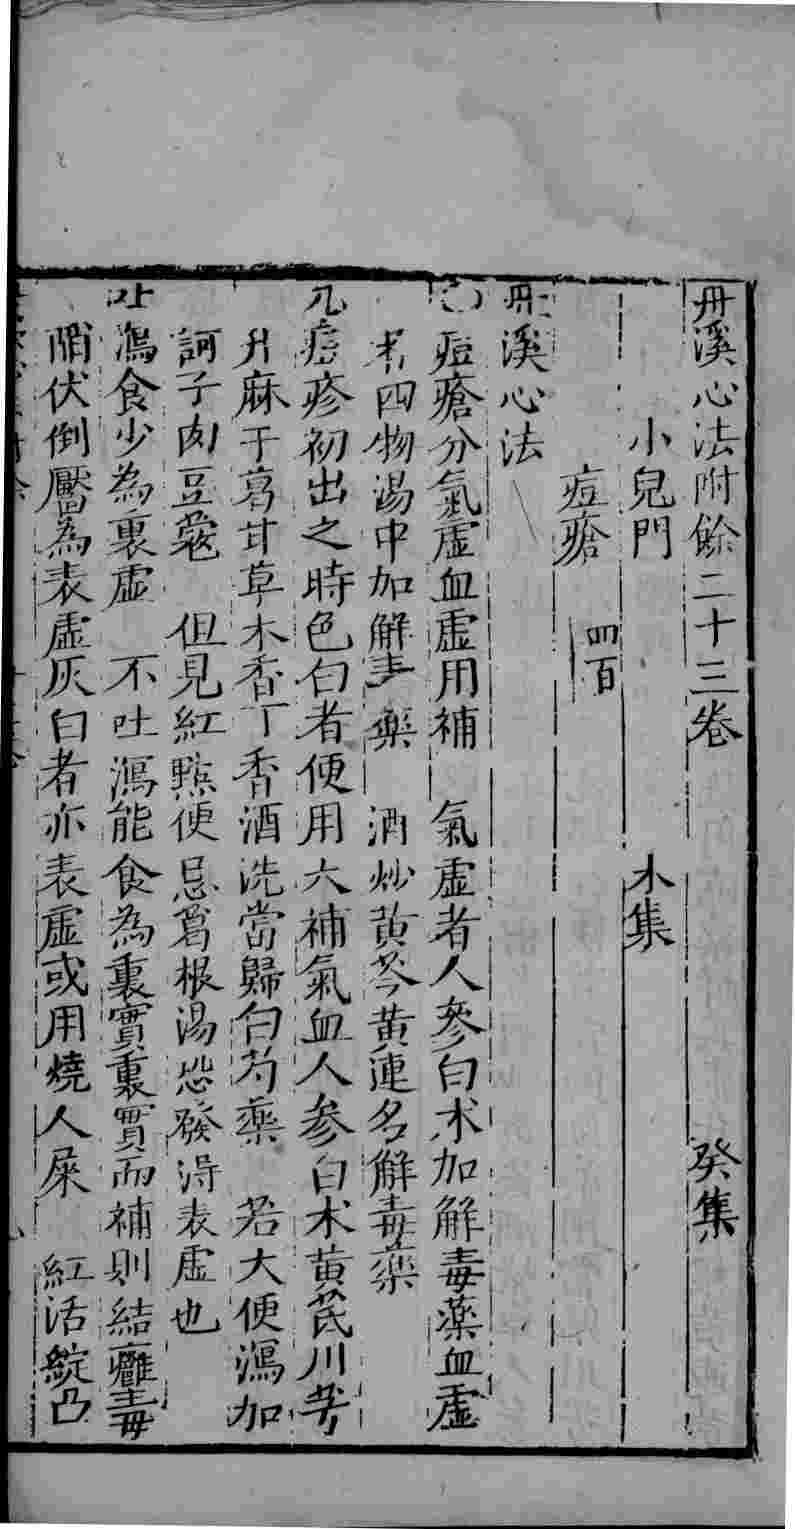 丹溪心法附餘二十三卷 癸集
小兒門 木集
痘瘡 四百
丹溪心法
○痘瘡分氣虛血虛用補 氣虛者人參白朮加解毒藥血虛
者四物湯中加解毒藥 酒炒黃芩黃連名解毒藥
凡痘疹初出之時色白者便用大補氣血人參白朮黃芪川芎
升麻干葛甘草木香丁香酒洗當歸白芍藥 若大便瀉加
訶子肉豆蔻 但見紅點便忌葛根湯恐發得表虛也
吐瀉食少為裏虛 不吐瀉能食為裏實裏實而補則結癰毒
陷伏倒靨為表虛灰白者亦表虛或用燒人屎 紅活綻凸